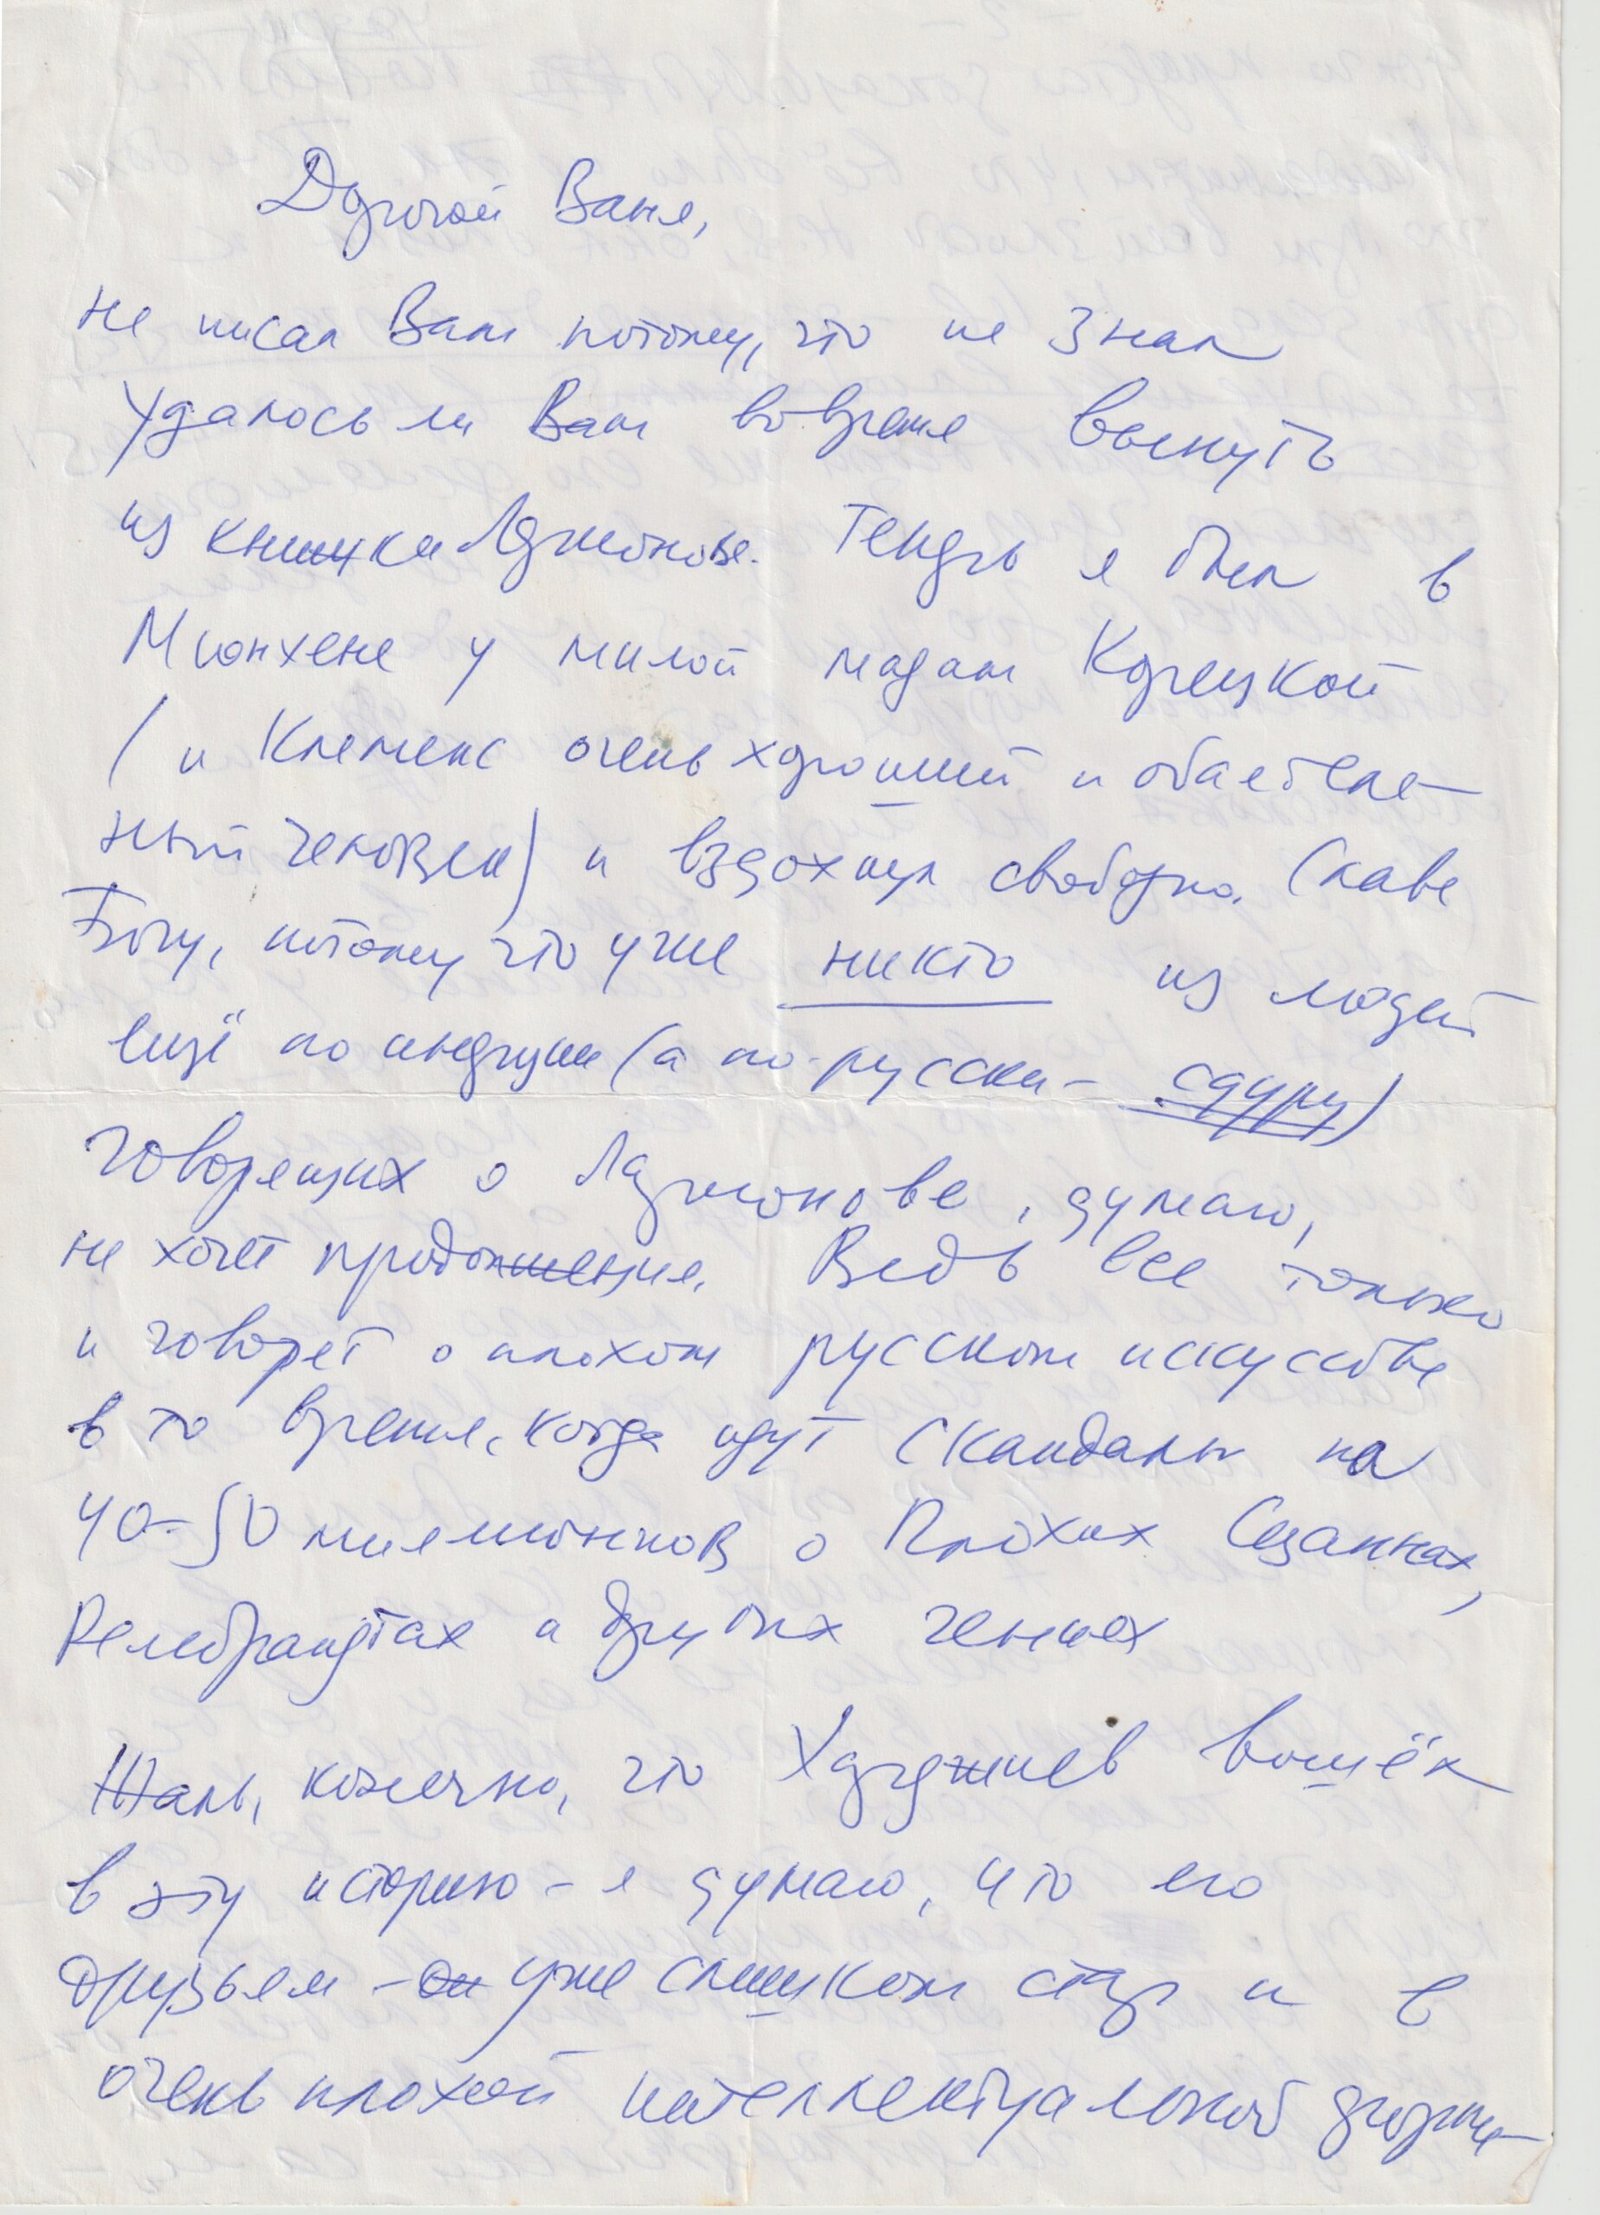 Дорогой Ваня,
не писал Вам потому, что не знал
удалось ли Вам вовремя вынуть
из книжки Ларионова. Теперь я был в
Мюнхене у милой мадам Корецкой
(и Клеменс очень хороший и обаятель-
ный человек) и вздохнул свободно. Слава
Богу, потому что уже никто из людей
ещё по инерции (а по-русски - сдуру)
говорящих о Ларионове, думаю,
не хочет продолжения. Ведь все только
и говорят о плохом русском искусстве
в то время, когда идут скандалы на
40-50 миллионов о плохих Сезаннах,
Рембрандтах и других гениях
Жаль, конечно, что Харджиев вошёл
в эту историю - я думаю, что его
друзьям - он уже слишком стар и в
очень плохой интеллектуальной форме